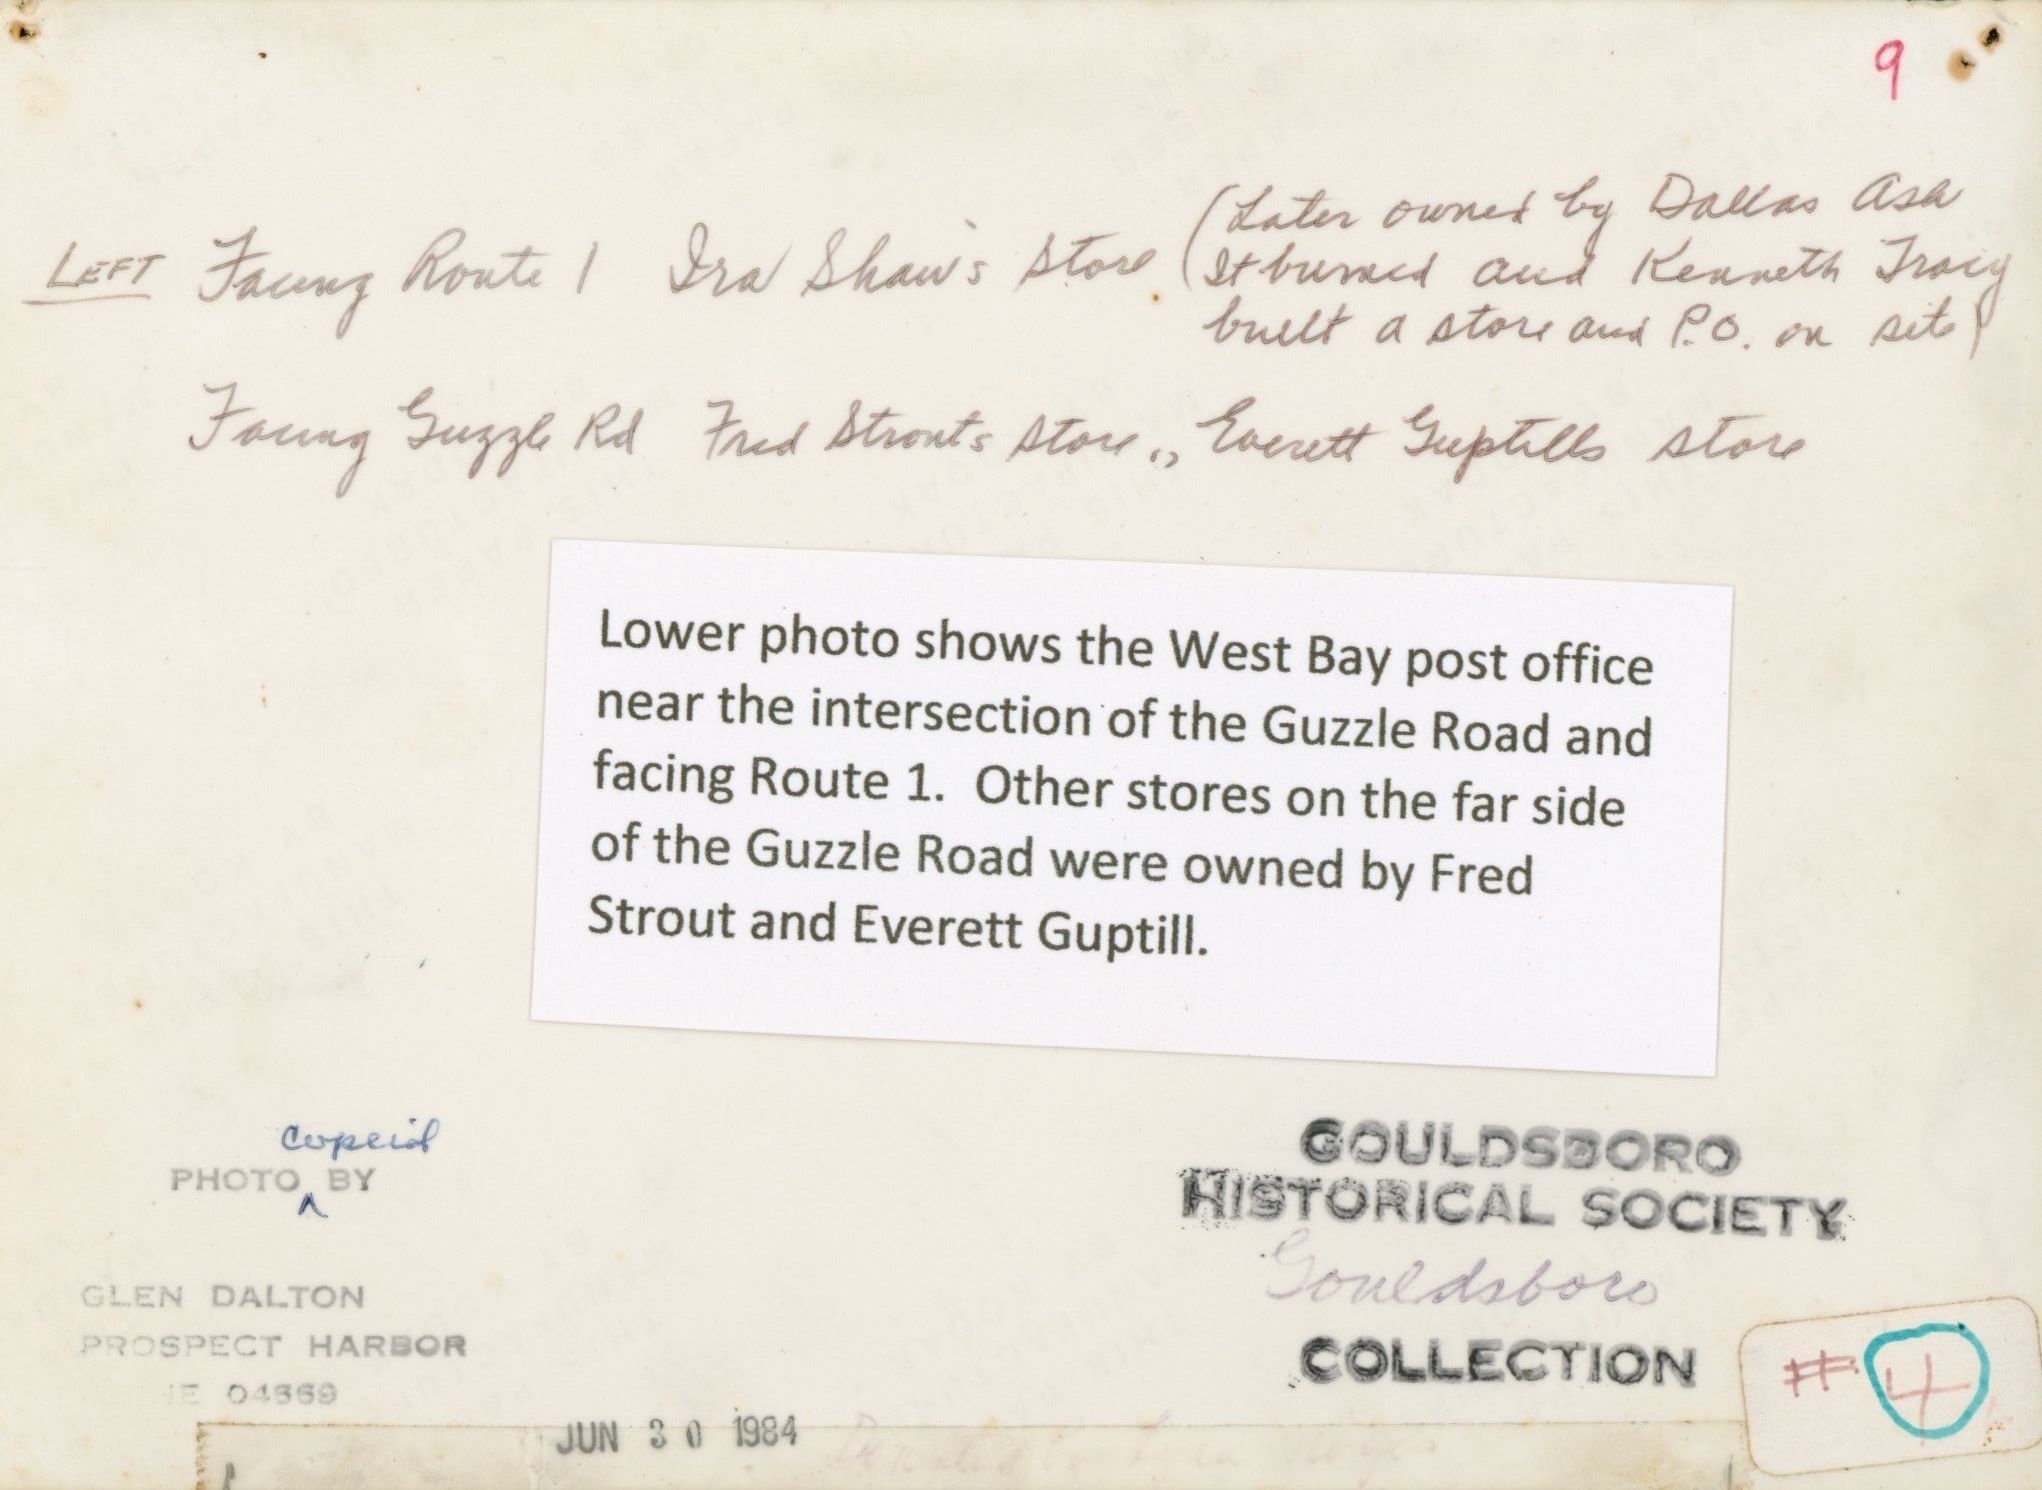 9
LEFT Facing Route 1 Ira Shaw's Store (Later owned by Dallas Ash
It burned and Kenneth Tracy
built a store and P.O. on site)
Facing Guzzle Rd Fred Strout's Store., Everett Guptills store
Lower photo shows the West Bay post office
near the intersection of the Guzzle Road and
facing Route 1. Other stores on the far side
of the Guzzle Road were owned by Fred
Strout and Everett Guptill.
copeid
PHOTO ^ BY
GLEN DALTON
PROSPECT HARBOR
04669
JUN 30 1984
GOULDSBORO
HISTORICAL SOCIETY
Gouldsboro
COLLECTION
#4